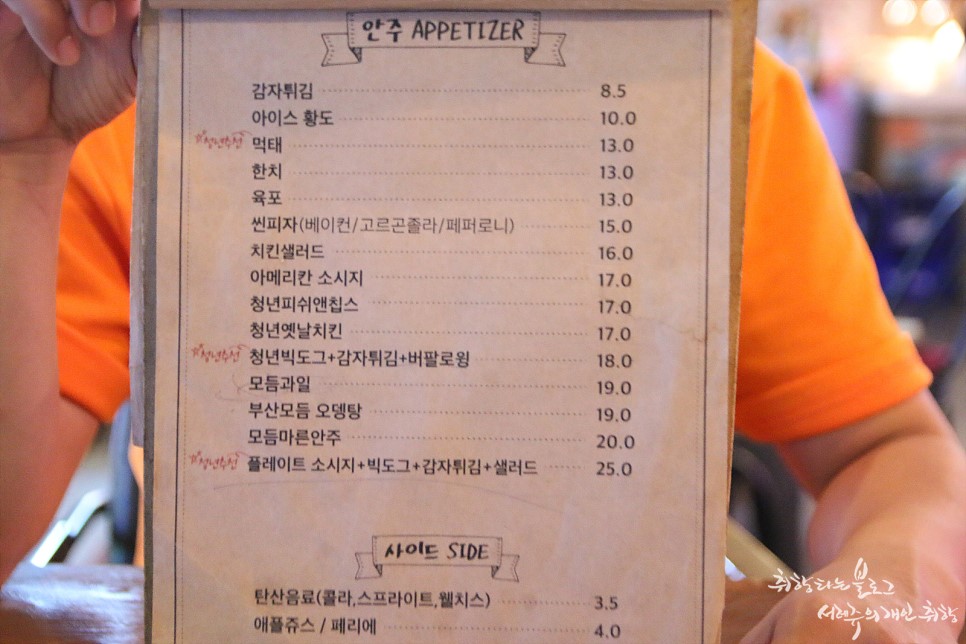 안주 APPETIZER
감자튀김 8.5
아이스 황도 10.0
청년추천 먹태 13.0
한치 13.0
육포 13.0
씬피자(베이컨/고르곤졸라/페퍼로니) 15.0
치킨샐러드 16.0
아메리칸 소시지 17.0
청년피쉬앤칩스 17.0
청년옛날치킨 17.0
청년추천 청년빅도그+감자튀김+버팔로윙 18.0
모듬과일 19.0
부산모듬 오뎅탕 19.0
모듬마른안주 20.0
청년추천 플레이트 소시지+빅도그+감자튀김+샐러드 25.0
사이드 SIDE
탄산음료(콜라,스프라이트,웰치스) 3.5
애플쥬스 / 페리에 4.0
취향타는 블로그
서현주의 개인 취향